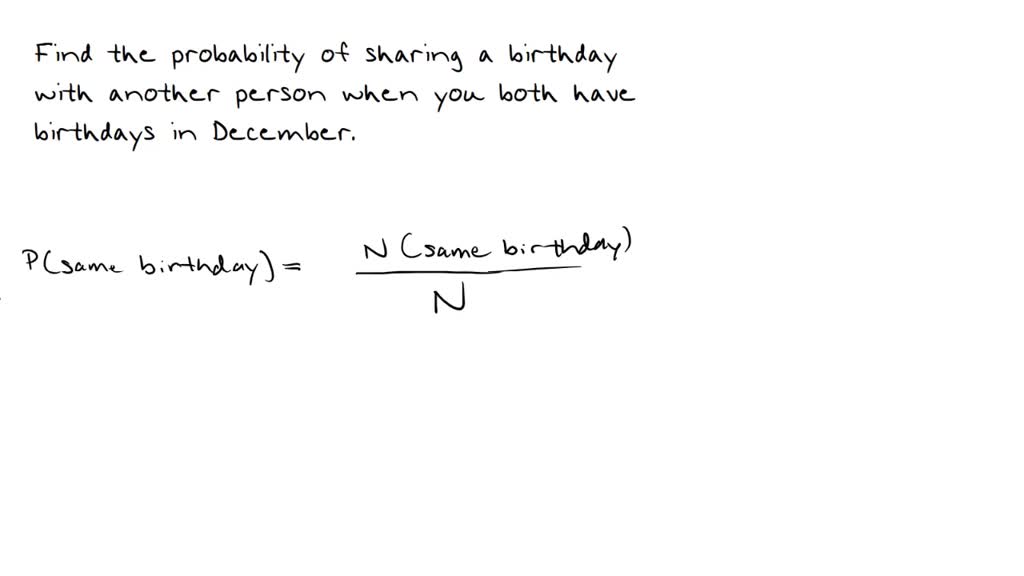 Find the probability of sharing a birthday
with another person when you both have
birthdays in December.
P(same birthday) = N(same birthday)
N